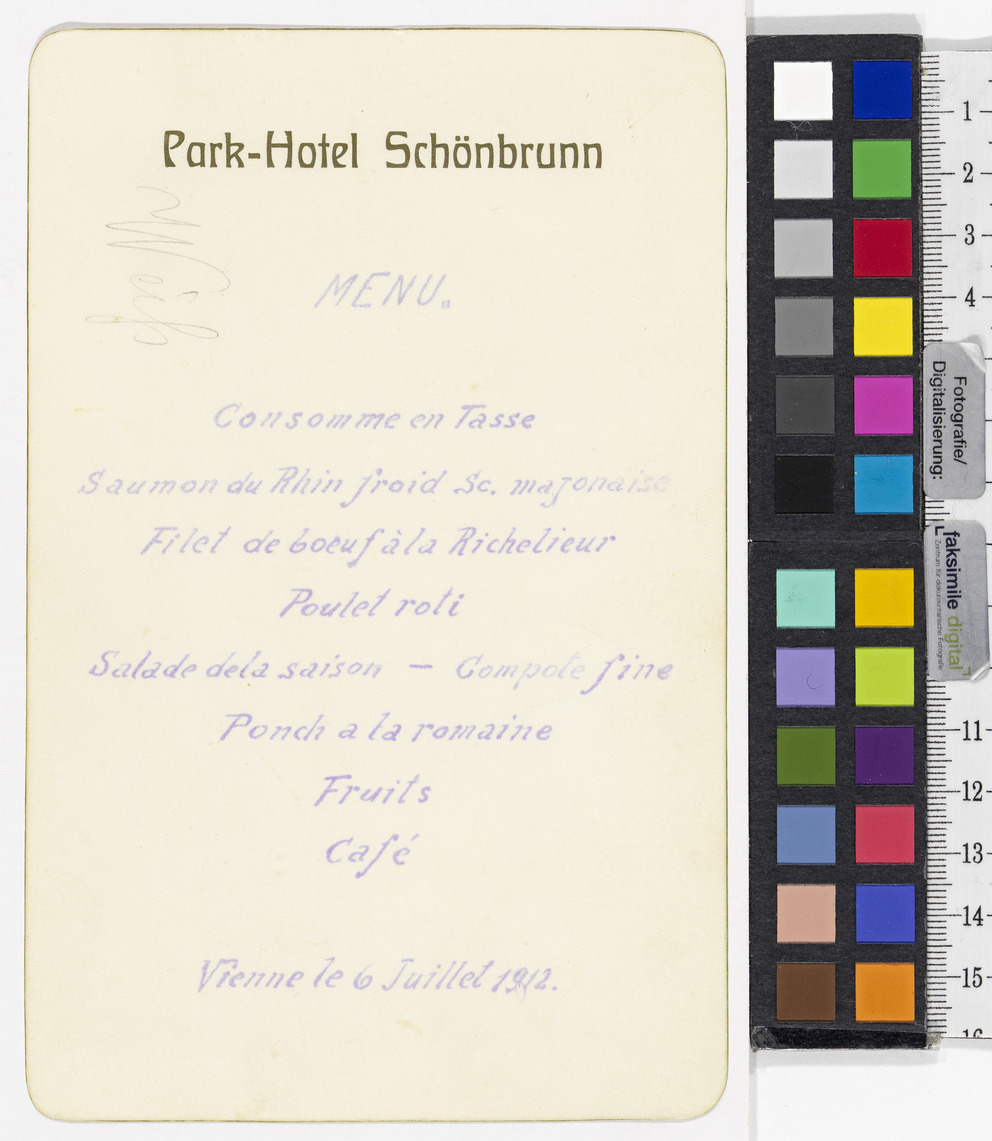 Park-Hotel Schönbrunn
MENU.
Consomme en Tasse
Saumon du Rhin froid Sc. majonaise
Filet de boeuf à la Richelieur
Poulet roti
Salade dela saison — Compote fine
Ponch a la romaine
Fruits
Café
Vienne le 6 Juillet 1912.
1
2
3
4
Fotografie/
Digitalisierung:
faksimile digital
Zentrum für dokumentarische Fotografie
11
12
13
14
15
16